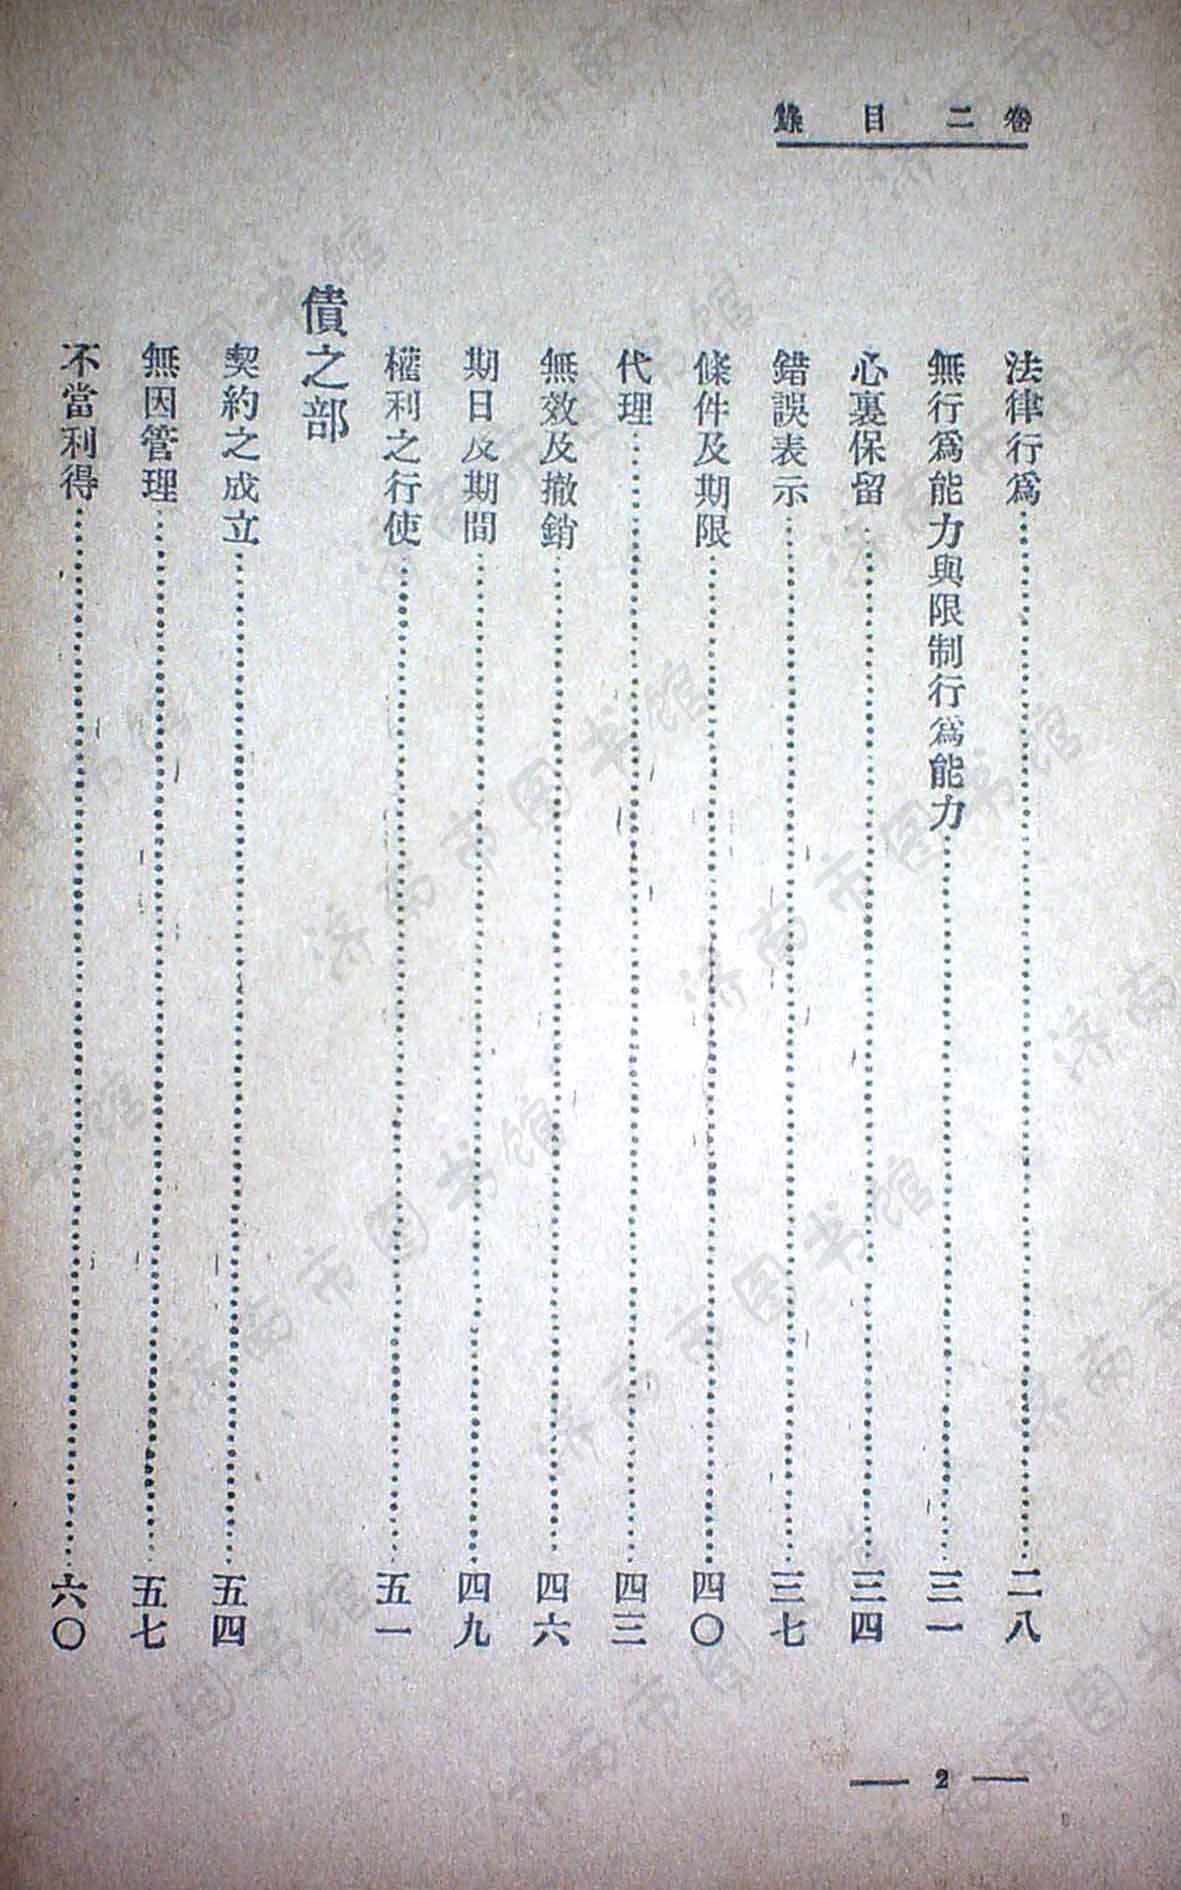 卷二目錄
法律行爲……二八
無行爲能力與限制行爲能力……三一
心裏保留……三四
錯誤表示……三七
條件及期限……四〇
代理……四三
無效及撤銷……四六
期日及期間……四九
權利之行使……五一
債之部
契約之成立……五四
無因管理……五七
不當利得……六〇
— 2 —
济南市图书馆